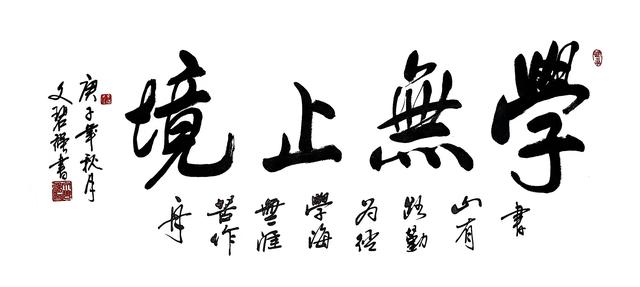 學無止境
書山有路勤为徑學海無涯苦作舟
庚子年秋月
文碧書